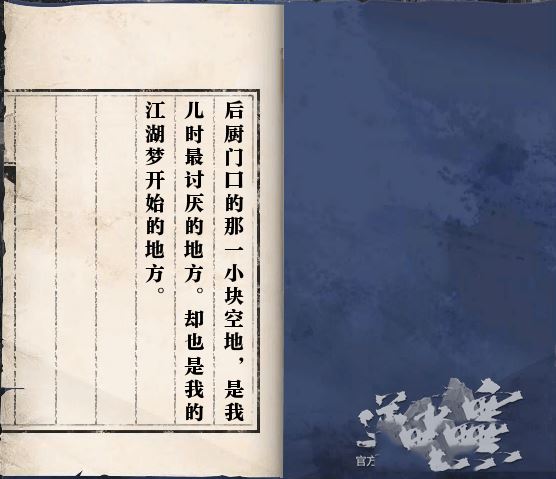 后厨门口的那一小块空地，是我
儿时最讨厌的地方。却也是我的
江湖梦开始的地方。
官方